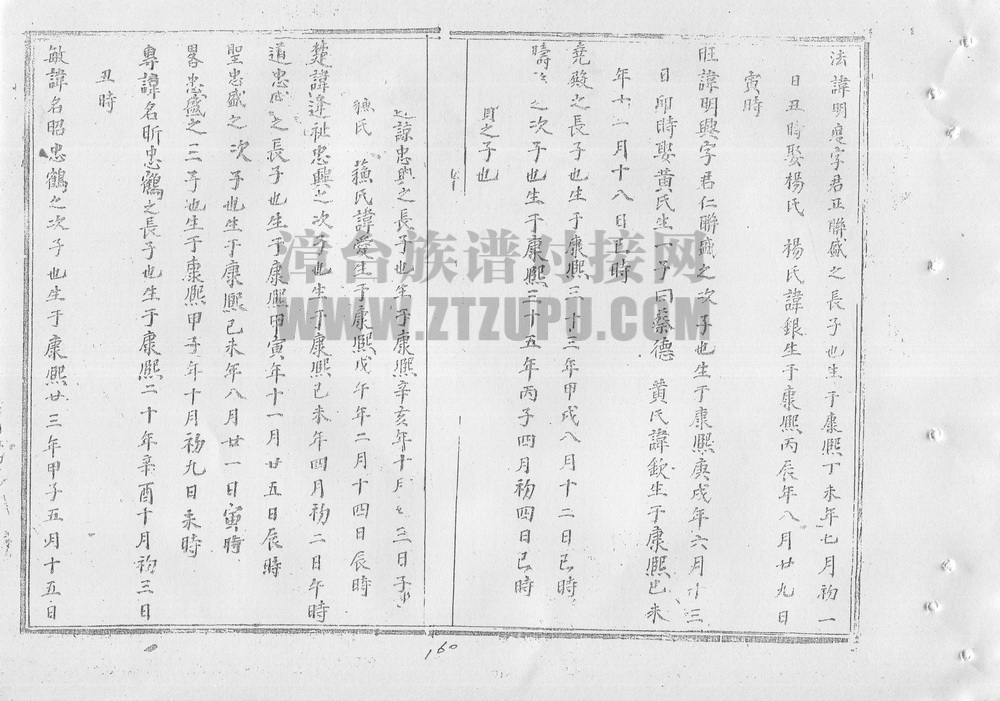 法諱明㫟字君正聯盛之長子也生于康熙丁未年七月初一
日丑時娶楊氏 楊氏諱銀生于康熙丙辰年八月廿九日
寅時
旺諱明興字君仁聯盛之次子也生于康熙庚戌年六月十三
日卯時娶黃氏生一子曰蔡德 黃氏諱欽生于康熙己未
年十一月十八日巳時
堯殿之長子也生于康熙三十三年甲戌八月十二日巳時
疇之次子也生于康熙三十五年丙子四月初四日巳時
貝之子也
諱忠興之長子也生于康熙辛亥年十月三日子
氏 氏諱愛生于康熙戊午年二月十四日辰時
楚諱逢祉忠興之次子也生于康熙己未年四月初二日午時
道忠盛之長子也生于康熙甲寅年十一月廿五日辰時
聖忠盛之次子也生于康熙己未年八月廿一日寅時
畧忠盛之三子也生于康熙甲子年十月初九日未時
專諱名昕忠鶴之長子也生于康熙二十年辛酉十月初三日
丑時
敏諱名昭忠鶴之次子也生于康熙廿三年甲子五月十五日
160
漳台族谱对接网
WWW.ZTZUPU.COM